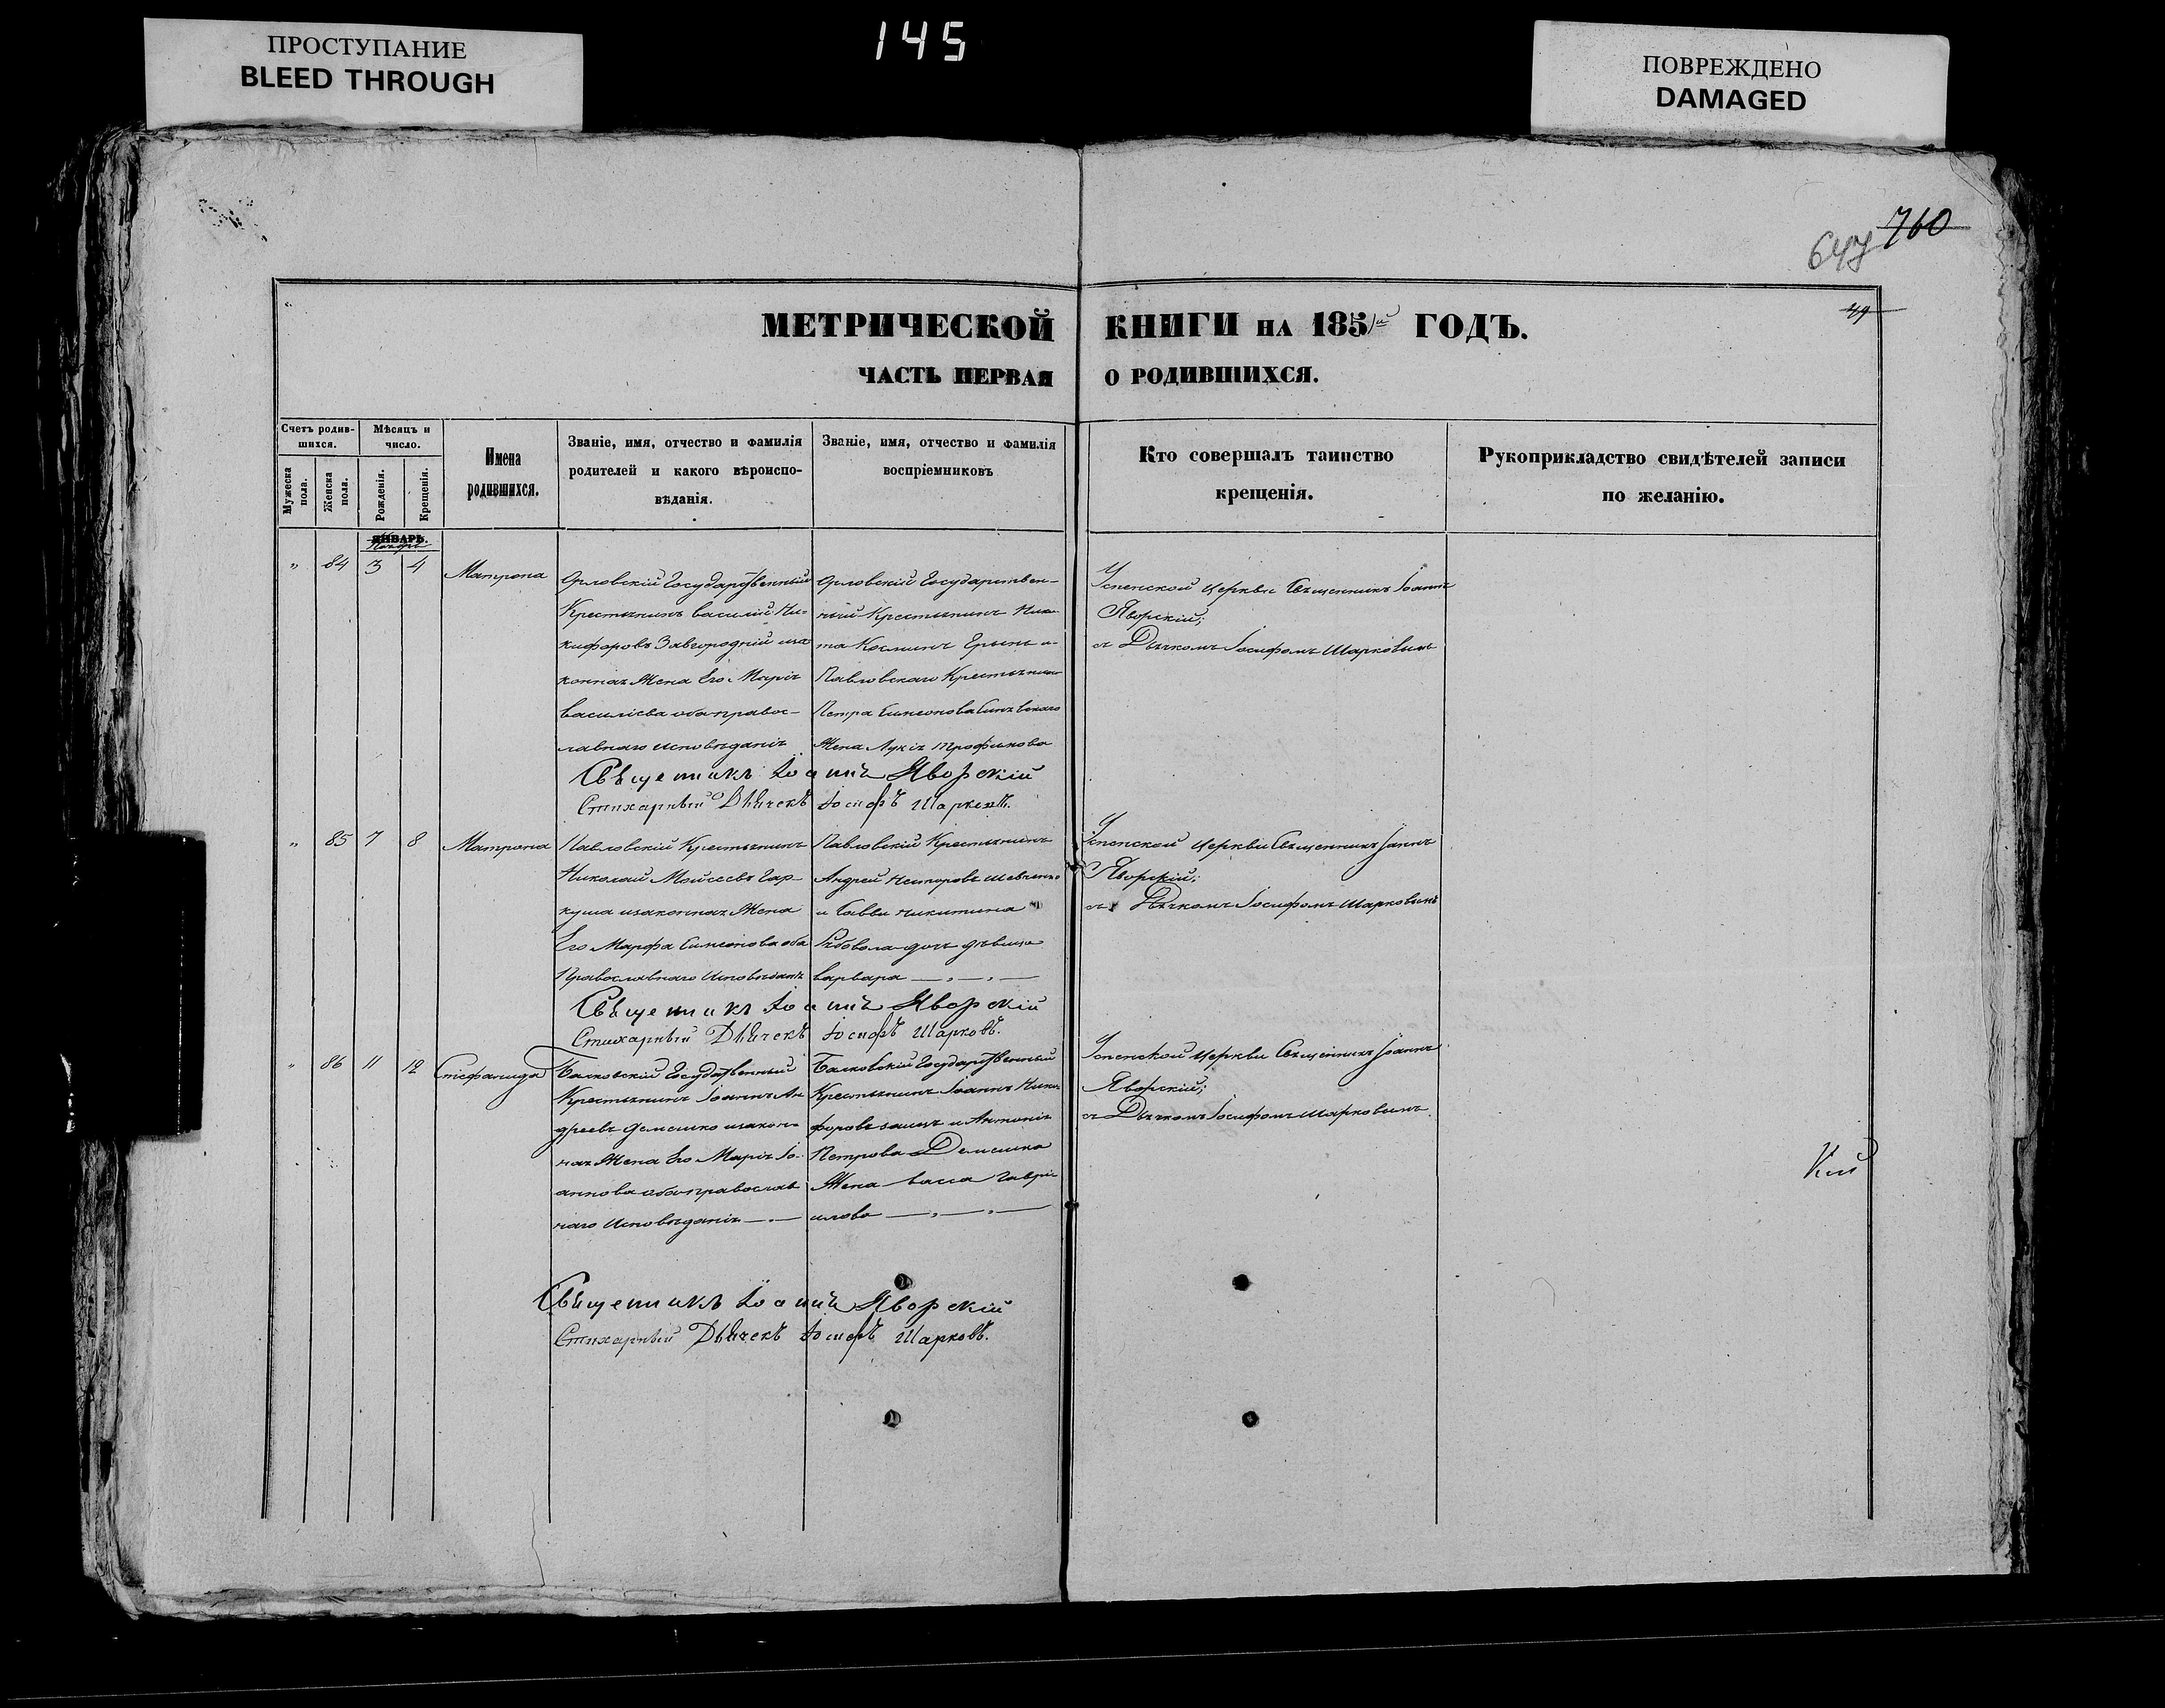 ПРОСТУПАНИЕ
BLEED THROUGH
145
ПОВРЕЖДЕНО
DAMAGED
760
49
МЕТРИЧЕСКОЙ КНИГИ НА 1851й ГОДЪ.
ЧАСТЬ ПЕРВАЯ О РОДИВШИХСЯ.
Счетъ родив-
шихся.
Мужеска пола.
Женска пола.
Мѣсяцъ и
число.
Рожденія.
Крещенія.
Имена
родившихся.
Званіе, имя, отчество и фамилія
родителей и какого вѣроиспо-
вѣданія.
Званіе, имя, отчество и фамилія
воспріемниковъ
Кто совершалъ таинство
крещенія.
Рукоприкладство свидѣтелей записи
по желанію.
ЯНВАРЬ.
" 84 3 4 Матрона
Орловскій Государственный
Крестьянинъ Василій Ни-
кифоровъ Завгородній иза
конная Жена Его Марія
Василіева оба правос-
лавнаго исповѣданія
Орловскій Государствен-
ный Крестьянинъ Ники
та Косминъ и
Павловскаго Крестьянина
Петра Симеонова
Жена Лукія Трофимова
Успенской Церкви Священникъ Іоаннъ
Яворскій;
съ Дьячкомъ Іосифомъ Шарковымъ
Священникъ Іоаннъ Яворскій
Стихарный Дьячекъ Іосифъ Шарковъ.
" 85 7 8 Матрона
Павловскій Крестьянинъ
Николай Мойсеевъ Гар-
куша изаконная Жена
Его Марфа Симеонова оба
Православнаго Исповѣданія
Павловскій Крестьянинъ
Андрей Несторовъ Шевченко
и Саввы Никитина
Рябовола дочь дѣвица
Варвара
Успенской Церкви Священникъ Іоаннъ
Яворскій;
съ Дьячкомъ Іосифомъ Шарковымъ
Священникъ Іоаннъ Яворскій
Стихарный Дьячекъ Іосифъ Шарковъ.
" 86 11 12 Стефанида
Балковскій Государственный
Крестьянинъ Іоаннъ Ан
дреевъ Демешко изакон-
ная Жена Его Марія Іо-
аннова оба православ
наго Исповѣданія
Балковскій Государственный
Крестьянинъ Іоаннъ Ники
форовъ Заецъ и Антонія
Петрова Демешка
Жена Васса Гаврі-
илова
Успенской Церкви Священникъ Іоаннъ
Яворскій;
съ Дьячкомъ Іосифомъ Шарковымъ.
Священникъ Іоаннъ Яворскій
Стихарный Дьячекъ Іосифъ Шарковъ.